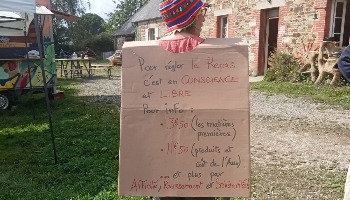 Pour régler le Repas
c'est en CONSCIENCE
et LIBRE
Pour info:
• 3€50 (les matières
premières)
(produits et
coût de l'Asso)
... et plus par
Activité, Investissement et